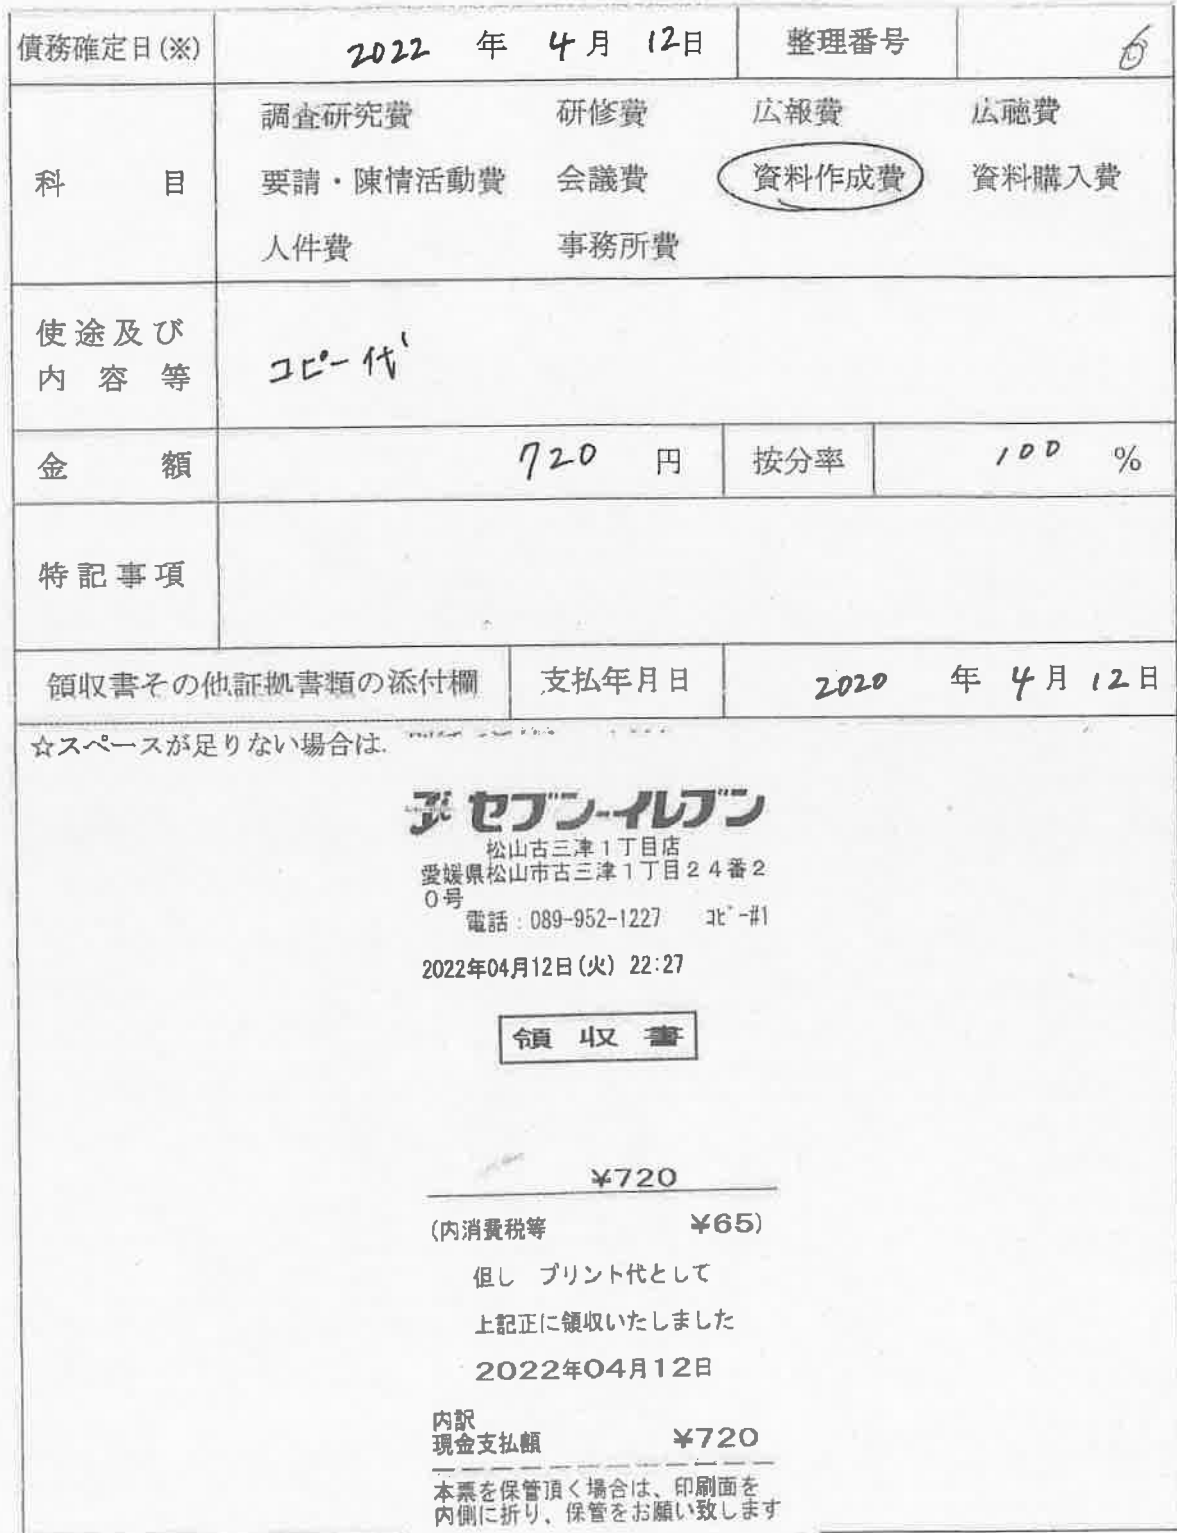 債務確定日(※) 2022 年 4月 12日 整理番号 6
調査研究費 研修費 広報費 広聴費
科 目 要請・陳情活動費 会議費 資料作成費 資料購入費
人件費 事務所費
使途及び
内容等
コピー代
金額 720 円 按分率 100 %
特記事項
領収書その他証拠書類の添付欄 支払年月日 2020 年 4月 12日
☆スペースが足りない場合は
セブン-イレブン
松山古三津1丁目店
愛媛県松山市古三津1丁目24番2
0号
電話:089-952-1227 コピー#1
2022年04月12日(火) 22:27
領収書
¥720
(内消費税等 ¥65)
但し プリント代として
上記正に領収いたしました
2022年04月12日
内訳
現金支払額 ¥720
本票を保管頂く場合は、印刷面を
内側に折り、保管をお願い致します